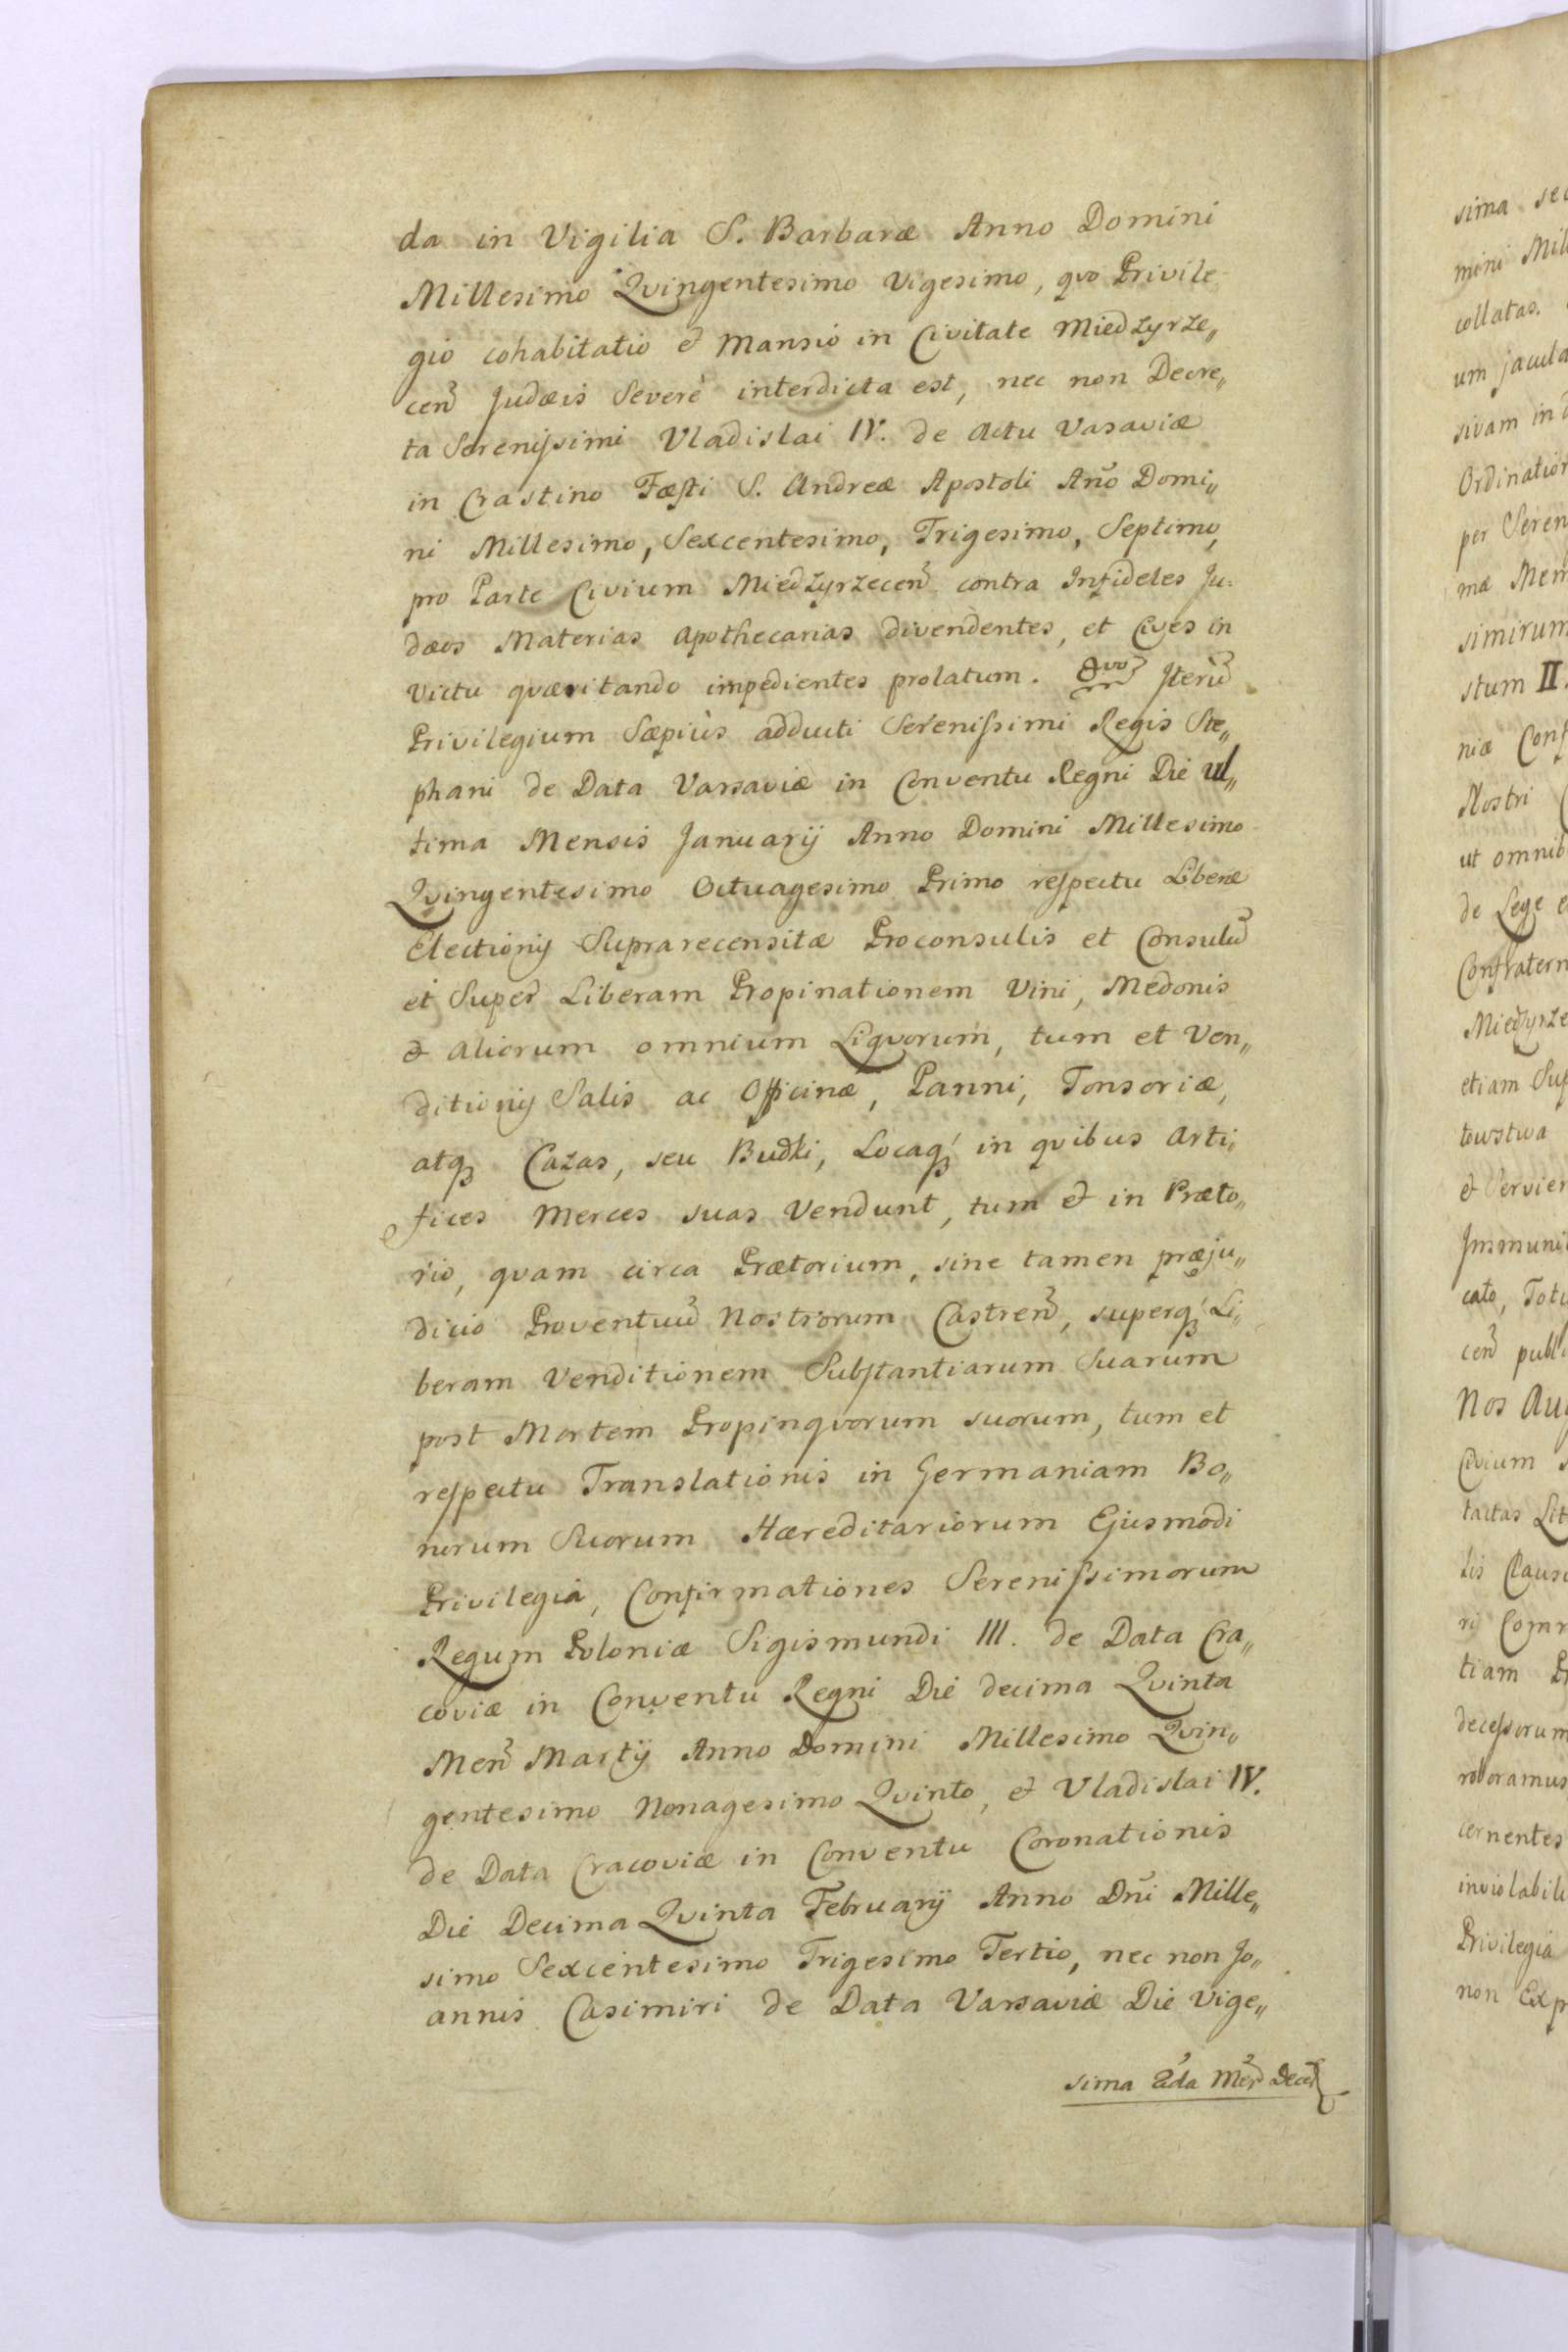 da in Vigilia S. Barbaræ Anno Domini
Millesimo Qvingentesimo Vigesimo, qvo Privile
gio cohabitatio & Mansio in Civitate Miedzyrze„
cen̄ Judæis Severè interdicta est, nec non Decre„
ta Serenissimi Vladislai IV. de Actu Vasaviæ
in Crastino Fæsti S. Andreæ Apostoli Año Domi„
ni Millesimo, Sexcentesimo, Trigesimo, Septimo,
pro Parte Civium Miedzyrzecen̄ contra Infideles Ju:
dæos Materias Apothecarias divendentes, et Cives in
Victu qværitando impedientes prolatum. 8vo Iterū
Privilegium Sæpiùs adducti Serenissimi Regis Ste„
phani de Data Varsaviæ in Conventu Regni Die ul„
tima Mensis Januarij Anno Domini Millesimo
Qvingentesimo Octuagesimo Primo respectu Liberæ
Electionij Suprarecensitæ Proconsulis et Consulū
et Super Liberam Propinationem Vini, Medonis
& Aliorum omnium Liqvorum, tum et Ven„
ditionij Salis ac Officinæ, Panni, Tonsoriæ,
atq Cazas, seu Budki, Locaq in qvibus Arti„
fices Merces suas Vendunt, tum & in Præto„
rio, qvam circa Prætorium, sine tamen præju„
dicio Proventuū Nostrorum Castren̄, superq Li„
beram Venditionem Substantiarum Suarum
post Mortem Propinqvorum suorum, tum et
respectu Translationis in Germaniam Bo„
norum Suorum Hæreditariorum Ejusmodi
Privilegia, Confirmationes Serenissimorum
Regum Poloniæ Sigismundi III. de Data Cra„
coviæ in Conventu Regni Die decima Qvinta
Men̄ Martij Anno Domini Millesimo Qvin„
gentesimo Nonagesimo Qvinto, & Vladislai IV.
de Data Cracoviæ in Conventu Coronationis
Die Decima Qvinta Februarij Anno Dñi Mille„
simo Sexcentesimo Trigesimo Tertio, nec non Jo„
annis Casimiri de Data Varsaviæ Die Vige„
sima 2da Men̄
sima
mini
collatas.
um
sivam in
per
simirum
stum II.
niæ
Nostri
ut
de Lege
etiam
towstwa
&
cato,
cen̄
Nos
Civium
tactas
lis
ri
tiam
decessorum
roboramus
cernentes
Privilegia
non